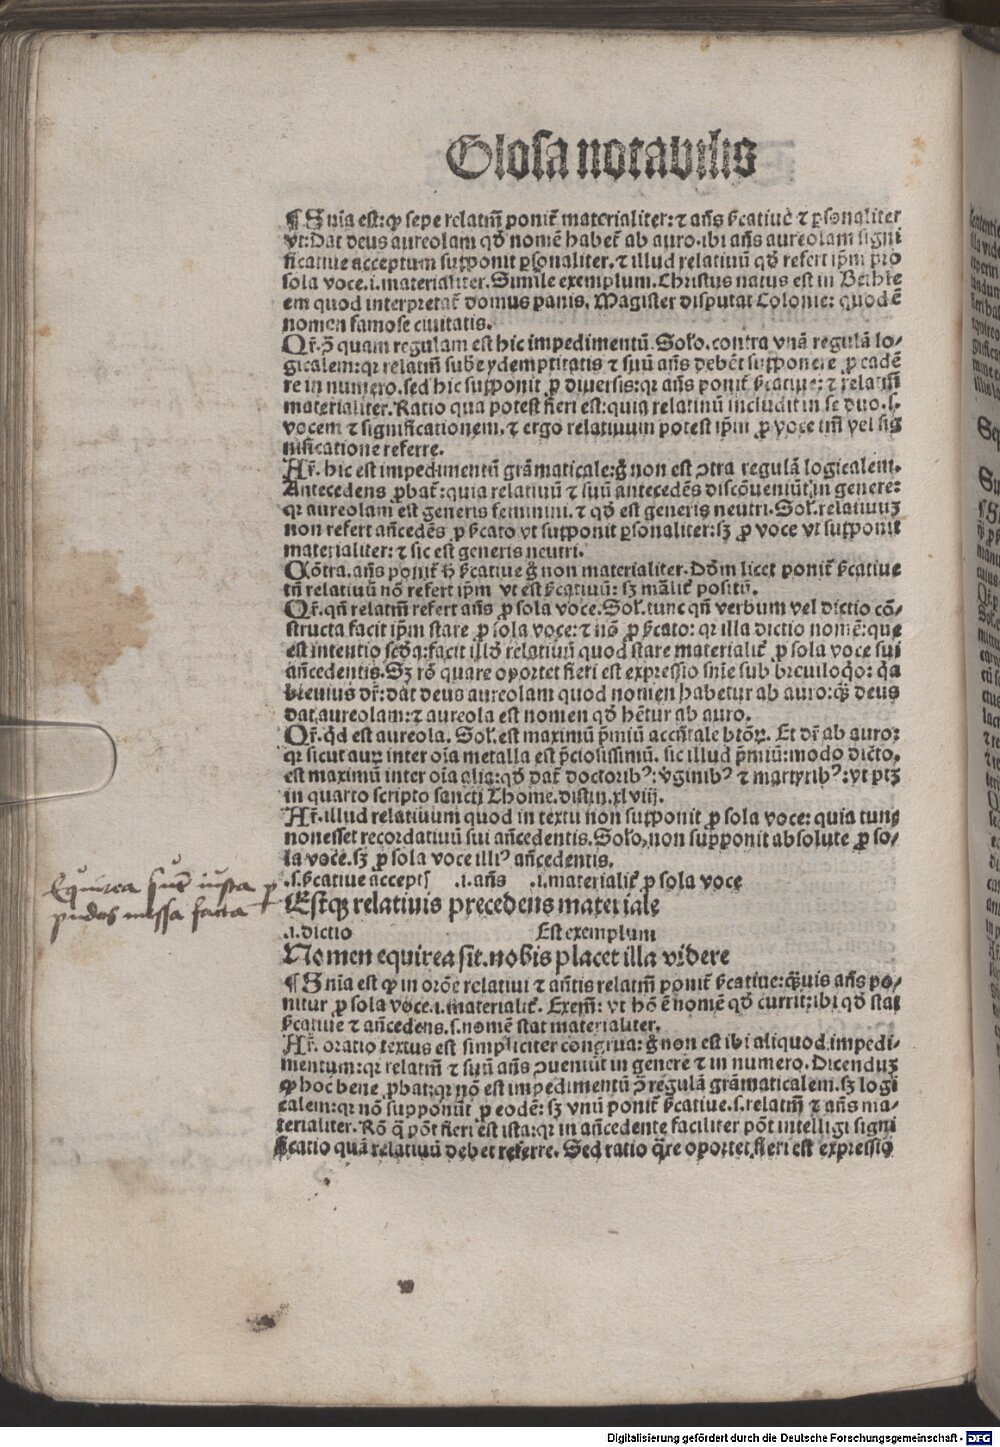 Glosa notabilis
¶ Snīa est: ꝙ sepe relatm̄ ponit᷑ materialiter: ⁊ añs ſ̄catiue ⁊ ꝑsonaliter
vt: Dat deus aureolam qd̄ nomē habet᷑ ab auro. ibi añs aureolam signi
ficatiue acceptum supponit ꝑsonaliter. ⁊ illud relatiuū qd̄ refert ip̄m pro
sola voce .i. materialiter. Simile exemplum. Christus natus est in Bethle
em quod interpretat᷑ domus panis. Magister disputat Colonie: quod ē
nomen famose ciuitatis.
Qr̄. ↄ̄ quam regulam est hic impedimentū. Solo. contra vnā regulā lo⸗
gicalem: qꝛ relatm̄ sube ydemptitatis ⁊ suū añs debēt supponere ꝓ eadē
re in numero. sed hic supponit ꝓ diuersis: qꝛ añs ponit᷑ ſ̄catiue: ⁊ relatm̄
materialiter. Ratio qua potest fieri est: quia relatiuū includit in se duo .s.
vocem ⁊ significationem. ⁊ ergo relatiuum potest ip̄m ꝓ voce tm̄ vel sig
nificatione referre.
Ar̄. hic est impedimentū grāmaticale: g̊ non est ↄtra regulā logicalem.
Antecedens ꝓbat᷑: quia relatiuū ⁊ suū antecedēs discōueniūt in genere:
qꝛ aureolam est generis feminini. ⁊ qd̄ est generis neutri. Sol̄. relatiuuꝫ
non refert añcedēs ꝓ ſ̄cato vt supponit ꝑsonaliter: sꝫ ꝓ voce vt supponit
materialiter: ⁊ sic est generis neutri.
Cōtra. añs ponit᷑ h̄ ſ̄catiue g̊ non materialiter. Dd̄m licet ponit᷑ ſ̄catiue
tn̄ relatiuū nō refert ip̄m vt est ſ̄catiuū: sꝫ māl̄it᷑ positū.
Qr̄. qn̄ relatm̄ refert añs ꝓ sola voce. Sol̄. tunc qn̄ verbum vel dictio cō⸗
structa facit ip̄m stare ꝓ sola voce: ⁊ nō ꝓ ſ̄cato: qꝛ illa dictio nomē: que
est intentio scd̄a: facit illd̄ relatiuū quod stare materialit᷑ ꝓ sola voce sui
añcedentis. Sꝫ rō quare oportet fieri est expressio snīe sub breuiloqo: qa
breuius dr̄: dat deus aureolam quod nomen habetur ab auro: ꝙ̄ deus
dat aureolam: ⁊ aureola est nomen qd̄ hētur ab auro.
Qr̄. qd̄ est aureola. Sol̄. est maximū p̄miū accn̄tale btōꝝ. Et dr̄ ab auro:
qꝛ sicut auꝝ inter oīa metalla est p̄ciosissimū. sic illud p̄miū: modo dicto.
est maximū inter oīa alia: qd̄ dat᷑ doctoribꝰ: v̄ginibꝰ ⁊ martyribꝰ: vt ptꝫ
in quarto scripto sancti Thome. distin. xlviij.
Ar̄. illud relatiuum quod in textu non supponit ꝓ sola voce: quia tunc
nonesset recordatiuū sui añcedentis. Solo. non supponit absolute ꝓ so⸗
la voce. sꝫ ꝓ sola voce illiꝰ añcedentis.
.s. ſ̄catiue accepti .i. añs .i. materialit᷑ ꝓ sola voce
Estqꝫ relatiuis precedens materiale
.i. dictio Est exemplum
Nomen equirea sit. nobis placet illa videre
¶ Snīa est ꝙ in orōe relatiui ⁊ añtis relatm̄ ponit᷑ ſ̄catiue: ꝙ̄uis añs po⸗
nitur ꝓ sola voce .i. materialit᷑. Exem̄: vt hō ē nomē qd̄ currit: ibi qd̄ stat
ſ̄catiue ⁊ añcedens .s. nomē stat materialiter.
Ar̄. oratio textus est simpliciter congrua: g̊ non est ibi aliquod impedi⸗
mentum: qꝛ relatm̄ ⁊ suū añs ↄueniūt in genere ⁊ in numero. Dicenduꝫ
ꝙ hoc bene ꝓbat: qꝛ nō est impedimentū ↄ̄ regulā grāmaticalem. sꝫ logi
calem: qꝛ nō supponūt ꝓ eodē: sꝫ vnū ponit᷑ ſ̄catiue .s. relatm̄ ⁊ añs ma⸗
terialiter. Rō q̄ pōt fieri est ista: qꝛ in añcedente faciliter pōt intelligi signi
ficatio quā relatiuū debet referre. Sed ratio q̄re oportet fieri est expressio
Equirea iusta
missa facta
Digitalisierung gefördert durch die Deutsche Forschungsgemeinschaft - DFG